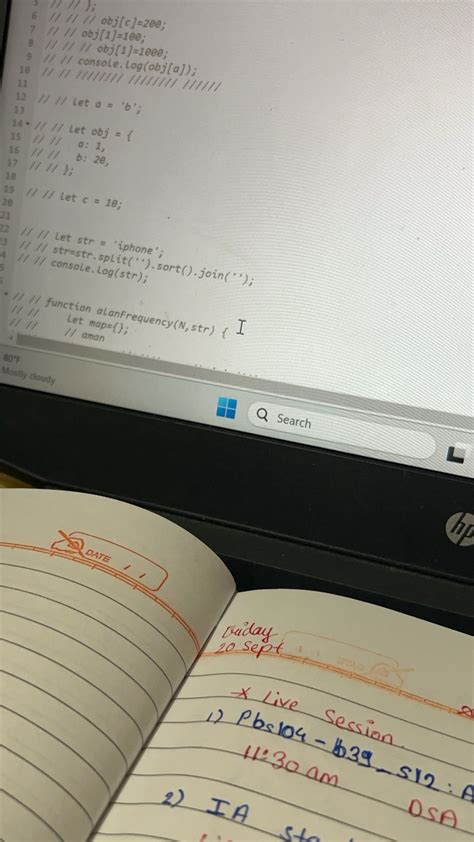 5 // // };
6 // // // obj[c]=200;
7 // // obj[1]=100;
8 // // // obj[1]=1000;
9 // // console.log(obj[a]);
10 // // //////// //////// //////
11
12 // // let a = 'b';
13
14 // // let obj = {
15 // // a: 1,
16 // // b: 20,
17 // // };
18
19 // // let c = 10;
20
21
22 // // let str = 'iphone';
23 // // str=str.split('').sort().join('');
24 // // console.log(str);
// // function alanFrequency(N,str) {
// // let map={};
// // // aman
80°F
Mostly cloudy
Search
hp
DATE / /
Friday
20 Sept
* Live Session.
1) Pbs104 - b39_S12 : A
11:30 am DSA
2) IA